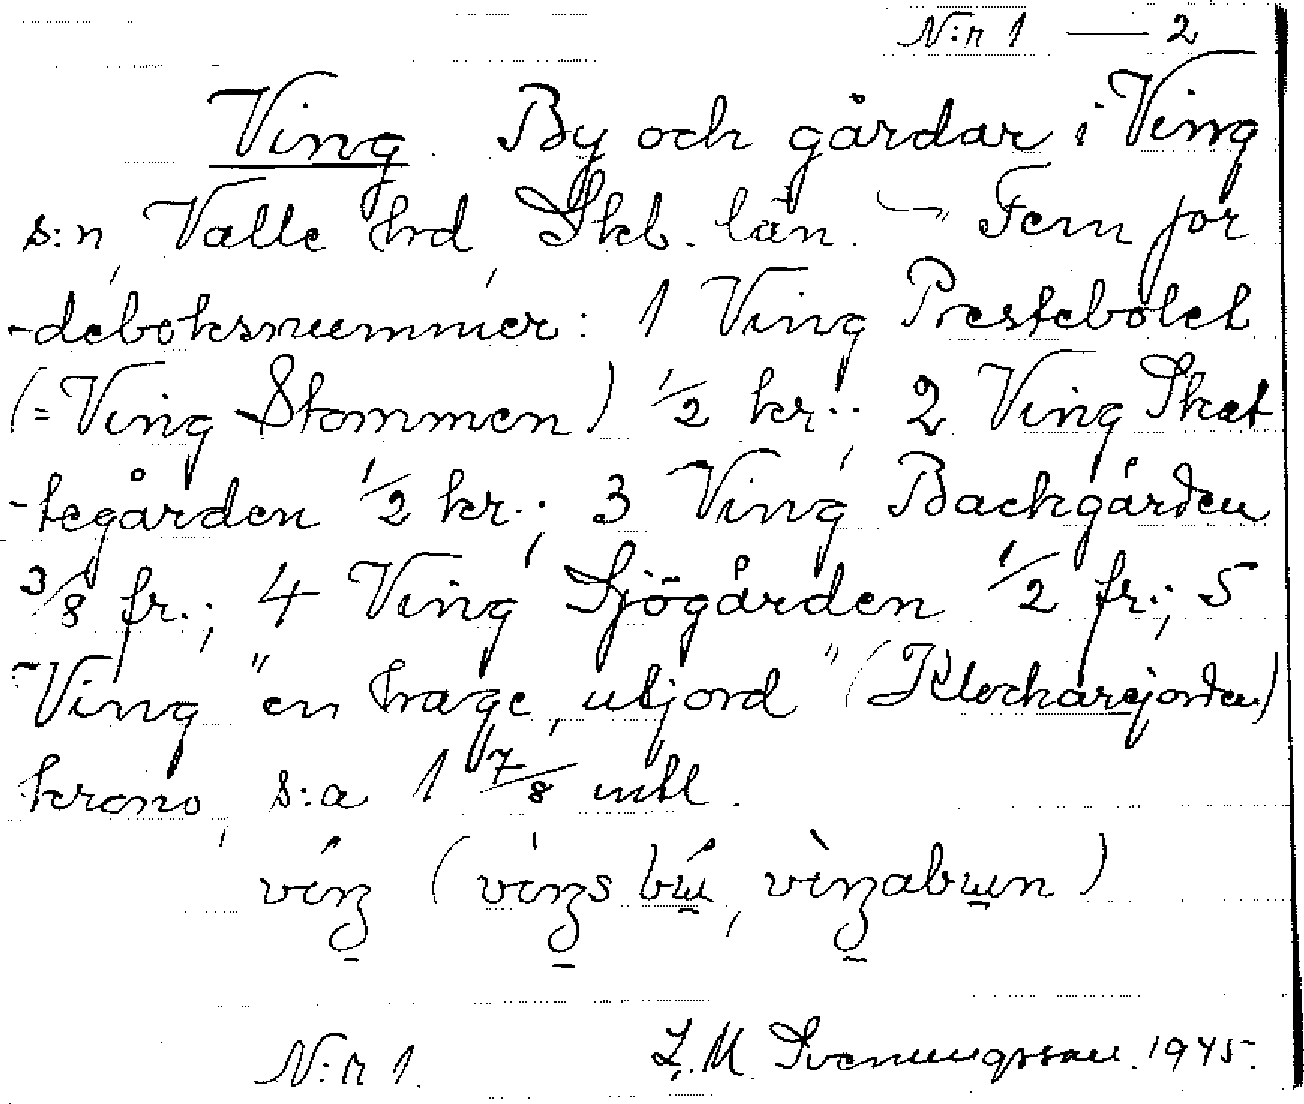 N:r 1 — 2
Ving. By och gårdar i Ving
s:n, Valle hrd, Skb. län. — Fem jor
-deboksnummer: 1 Ving Prestebolet
(= Ving Stommen) 1/2 kr.; 2 Ving Skat
-tegården 1/2 kr.; 3 Ving Backgården
3/8 fr.; 4 Ving Sjögården 1/2 fr.; 5
Ving "en hage, utjord" (Klockarejorden)
krono, s:a 1 7/8 mtl.
N:r 1. L. M. Svenungsson. 1945.